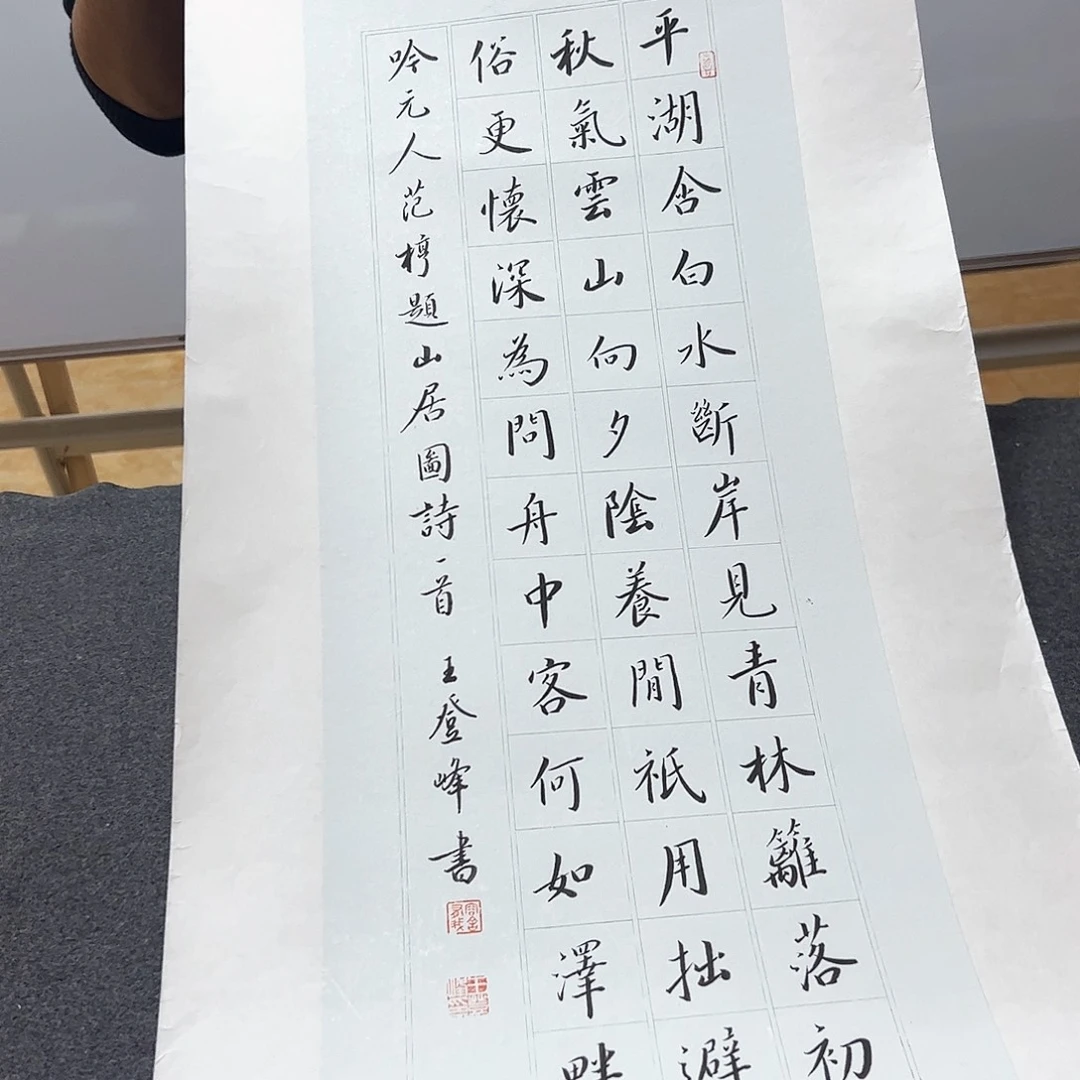 平湖含白水斷岸見青林籬落初
秋氣雲山向夕陰養閒祇用拙避
俗更懷深為問舟中客何如澤畔
吟元人范梈題山居圖詩一首 王登峰書